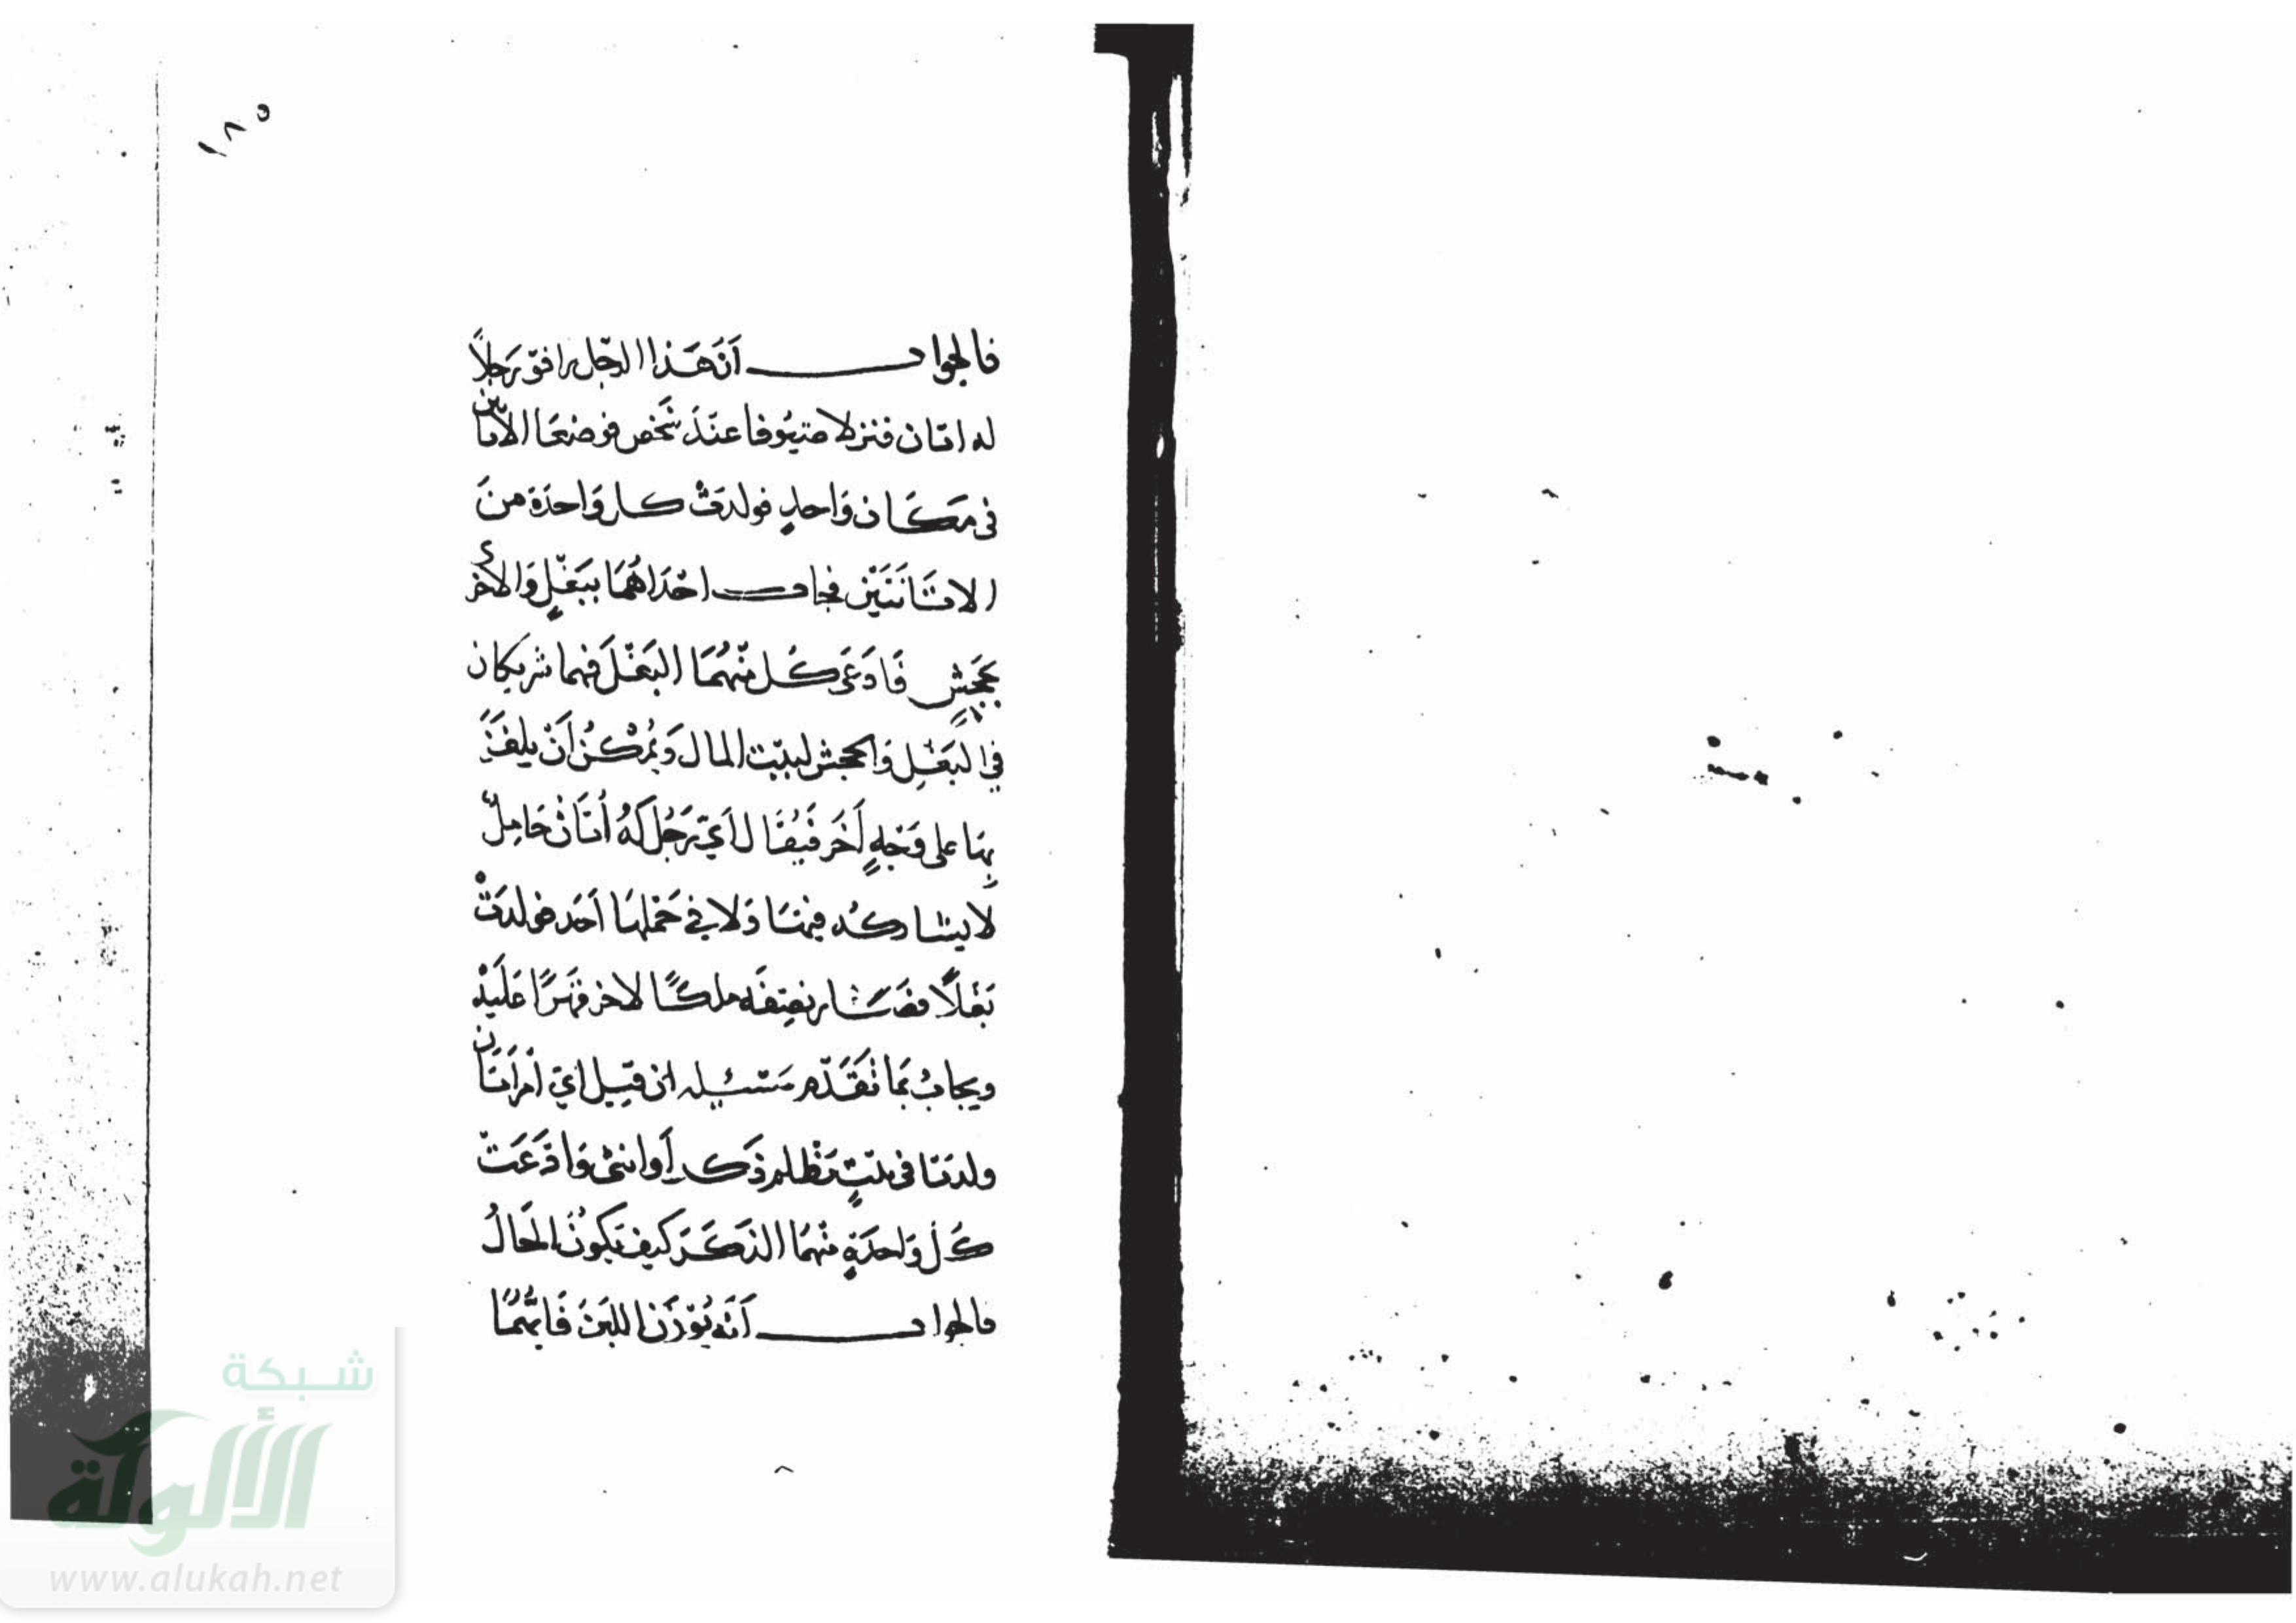 ١٨٥
فالجواب أَنَّ هَذا الرجل رافق رَجلاً
له اتان فنزلا ضيوفا عندَ شَخص فوضعَا الأتانين
في مَكَان وَاحدٍ فولدتْ كل وَاحدَة منَ
الاتَانَتَيْن فجات احْدَاهُمَا ببَغْلٍ وَالأخرى
بجَحْشٍ فَادَعَى كُل منْهُمَا البَغْلَ فهما شريكان
في البَغْلِ وَالجحش لبيْت المال وَيُمْكنُ أَنْ يلغزَ
بِهَا على وَجْهٍ أَخَر فَيُقَال اَيّ رَجُل لَهُ أتَانْ حَامِلٌ
لا يشاركُه فيهَا وَلا في حَمْلهَا أحَد فولدَتْ
بَغْلاً فصَار نصِفَه ملكًا لاخر قهَرًا عَلَيْه
ويجابُ بمَا تقَدّم مَسْئله ان قيل ايّ امْرأتَان
ولدتا في بيْتٍ مظلم ذَكر أَوانثى وَادَّعَتْ
كَل وَاحدَةٍ منْهُمَا الذكَرَ كيف يَكونُ الحَالُ
فالجواب أَنَّه يُوْزَن اللبَنُ فَايّهُمَا
شبكة
الألوكة
www.alukah.net